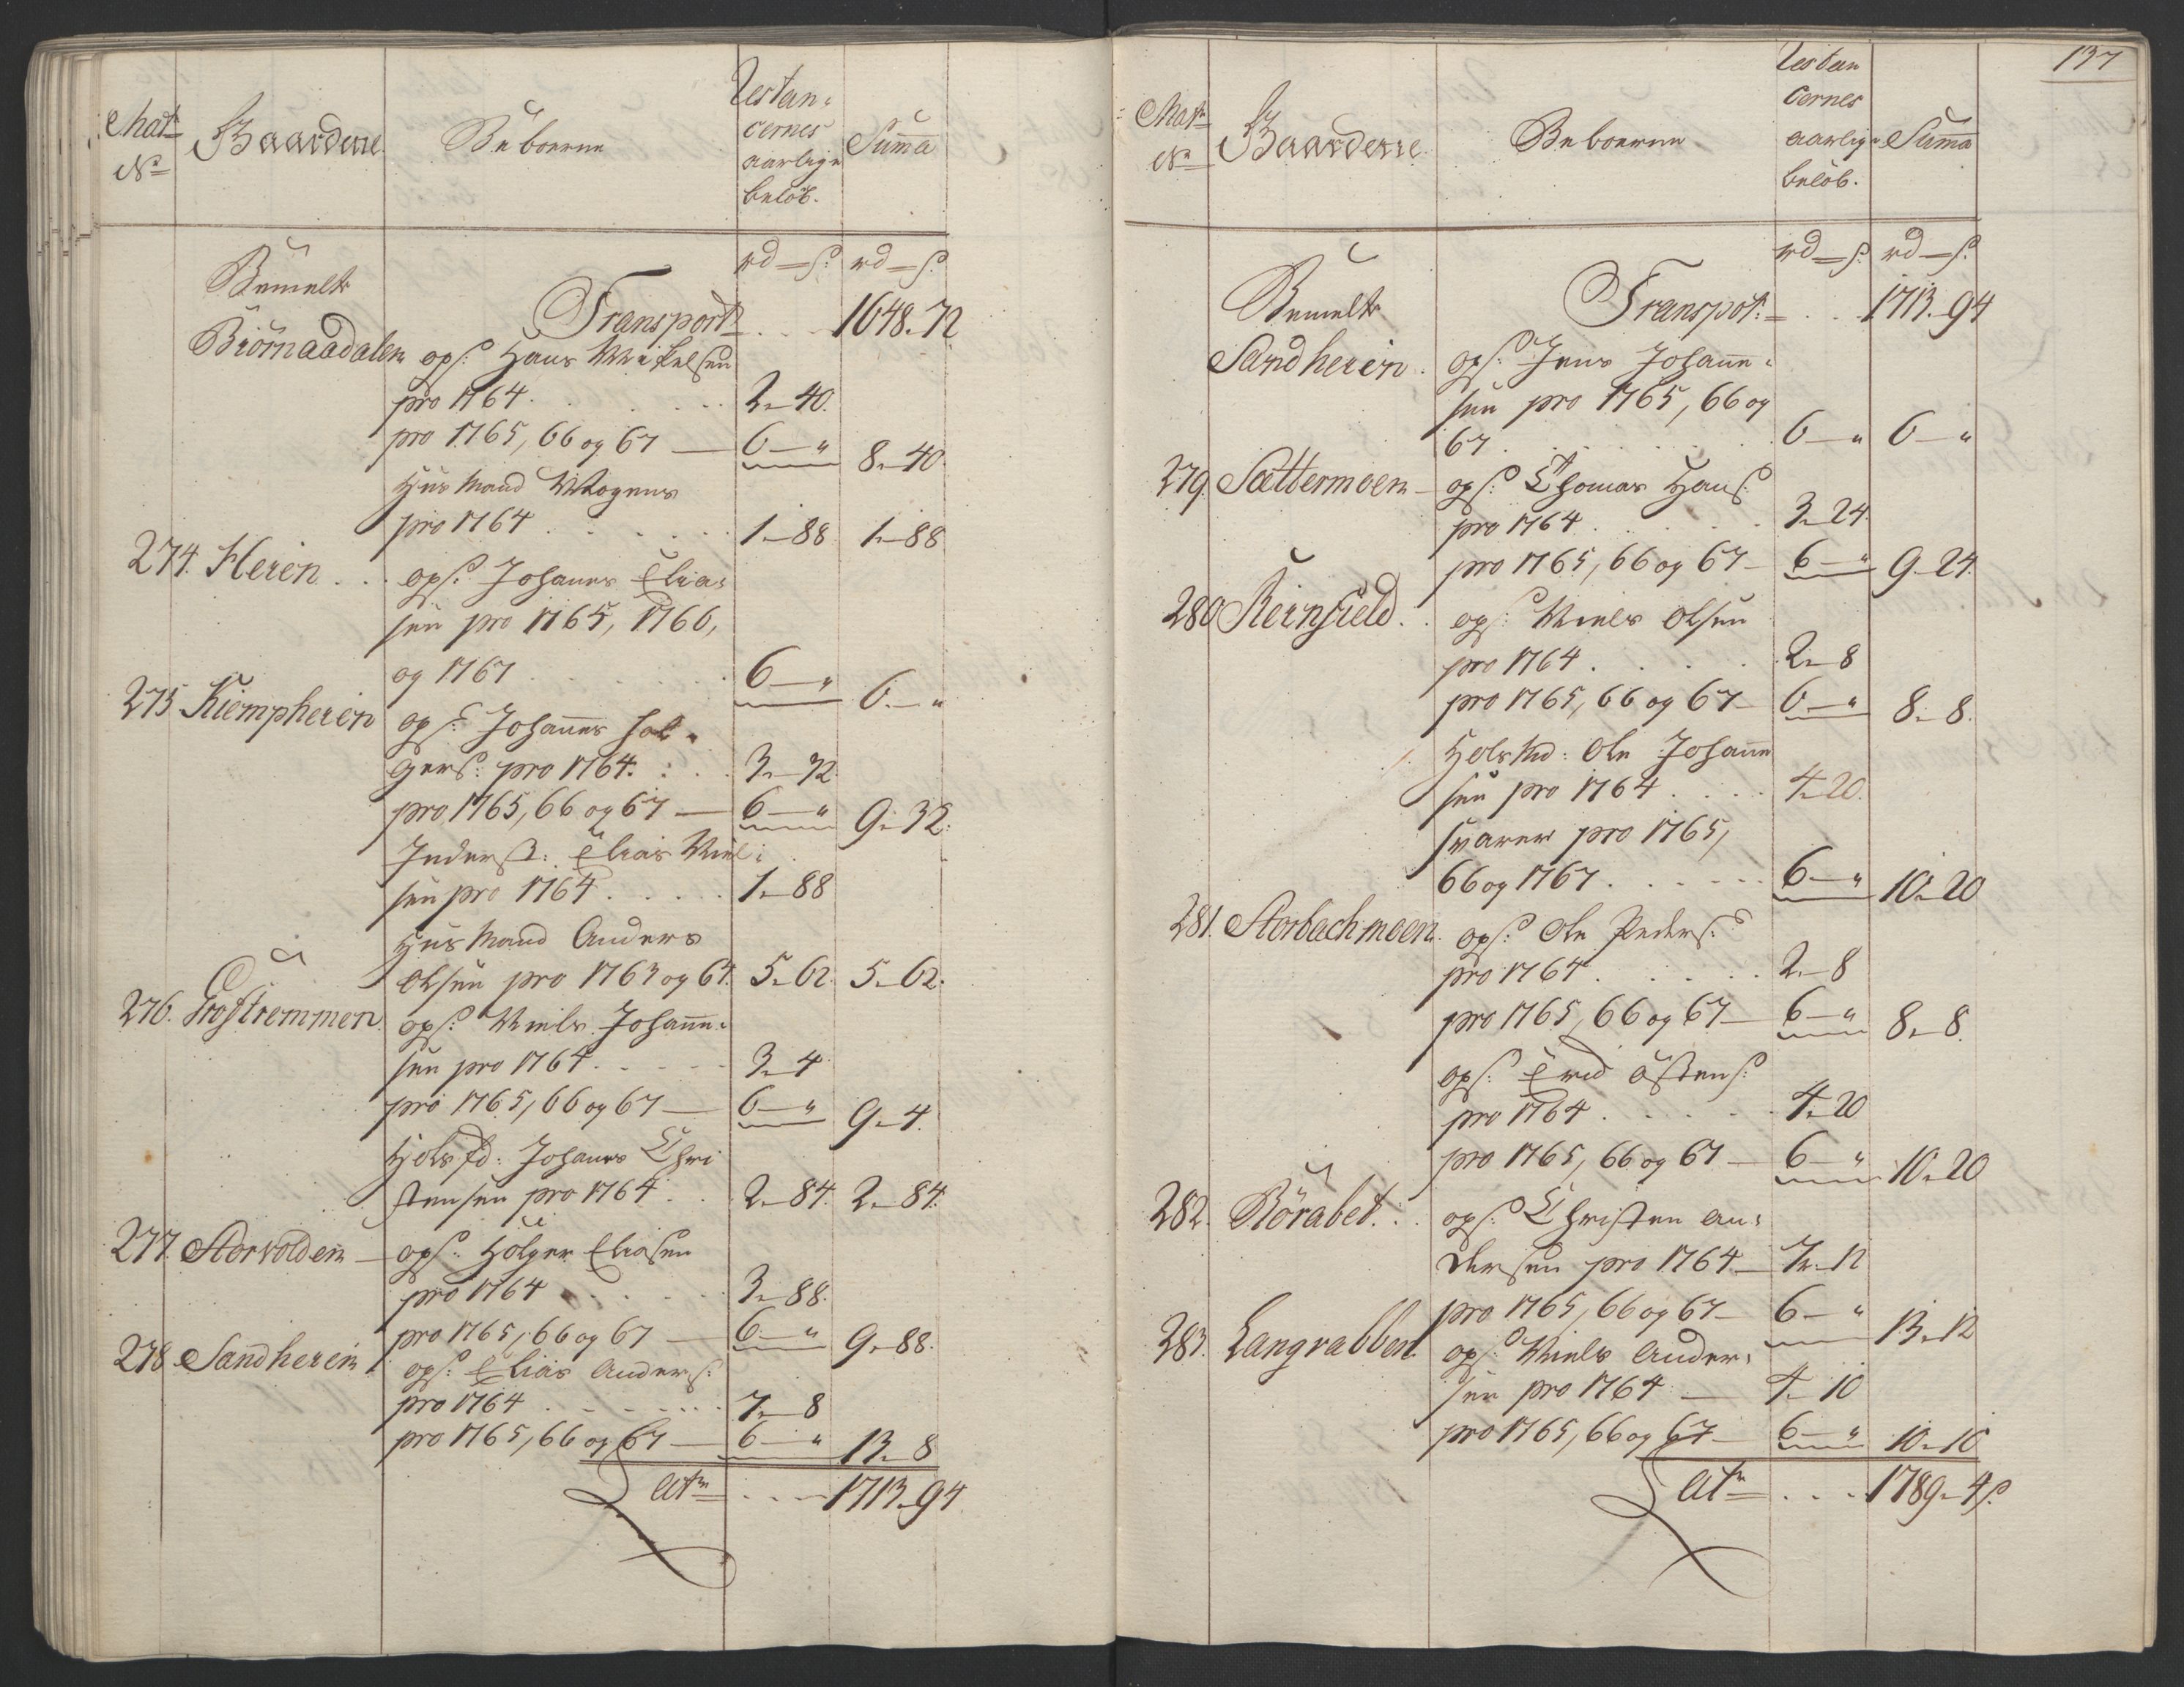 Mat:
No
Gaardene
Beboerne
Restan-
cernes
aarlige
beløb.
Summa
rd — s: rd — s:
Bemelte
Transport . . . 1648. 72
Biørnaadalen ops: Hans Mikelsen
pro 1764. . . . . 2. 40.
pro 1765, 66 og 67 — 6 — " 8. 40.
Huusmand Mogens
pro 1764 . . . . . 1. 88 1. 88
274. Fleren . . . ops: Johanes Elia-
sen pro 1765, 1766,
og 1767 . . . . . 6 — " 6. — "
275 Kiempheien ops: Johannes Hol-
gers: pro 1764. : . . 3. 32
pro 1765, 66 og 67 — 6 — " 9. 32.
Inderst: Elias Niel-
sen pro 1764 . . . . 1. 88
Huusmand Anders
Olsen pro 1763 og 64. 5. 62. 5. 62.
276. Trostremmen. ops: Niels Johanne-
sen pro 1764. . . . . 3. 4
pro 1765, 66 og 67 — 6 — " 9. 4.
Holsfd: Johanes Chri
stensen pro 1764 . . 2. 84. 2. 84.
277. Storvolden — ops: Holger Eliasen
pro 1764 . . . . 3. 88.
pro 1765, 66 og 67 — 6 — " 9. 88.
278. Sandheien ops: Elias Anders:
pro 1764 . . . . . 7. 8
pro 1765, 66 og 67 — 6 — " 13. 8
Lat: . . . 1713. 94
137
Mat:
No
Gaardene
Beboerne
Restan
cernes
aarlige
beløb.
Summa
rd — s: rd — s:
Bemelte
Transpot: . . . 1713. 94
Sandheien. ops: Jens Johanne-
sen pro 1765, 66 og
67 . . . . . . 6 — " 6 — "
279. Sættermoen — ops: Thomas Hans:
pro 1764 . . . . . 3. 24.
pro 1765, 66 og 67 — 6 — " 9. 24.
280 Reinfield . . ops: Niels Olsen
pro 1764 . . . . . 2. 8
pro 1765, 66 og 67 — 6 — " 8. 8.
Ole Johanne
sen pro 1764 . . . . 4. 20.
svarer pro 1765,
66 og 1767 . . . . . 6 — " 10. 20
281. Storbachmoen. ops: Ole Peders:
pro 1764 . . . . . 2. 8
pro 1765, 66 og 67 — 6 — " 8. 8.
ops: Erid Østens:
pro 1764 . . . . . 4. 20
pro 1765, 66 og 67 — 6 — " 10. 20
282. Rörabet. : . ops: Christen An-
dersen pro 1764 — 7. 12
pro 1765, 66 og 67 — 6 — " 13. 12
283. Langrabben. ops: Niels Ander-
sen pro 1764 — 4. 10
pro 1765, 66 og 67 — 6 — " 10. 10
Lat: . . . 1789. 4 s: